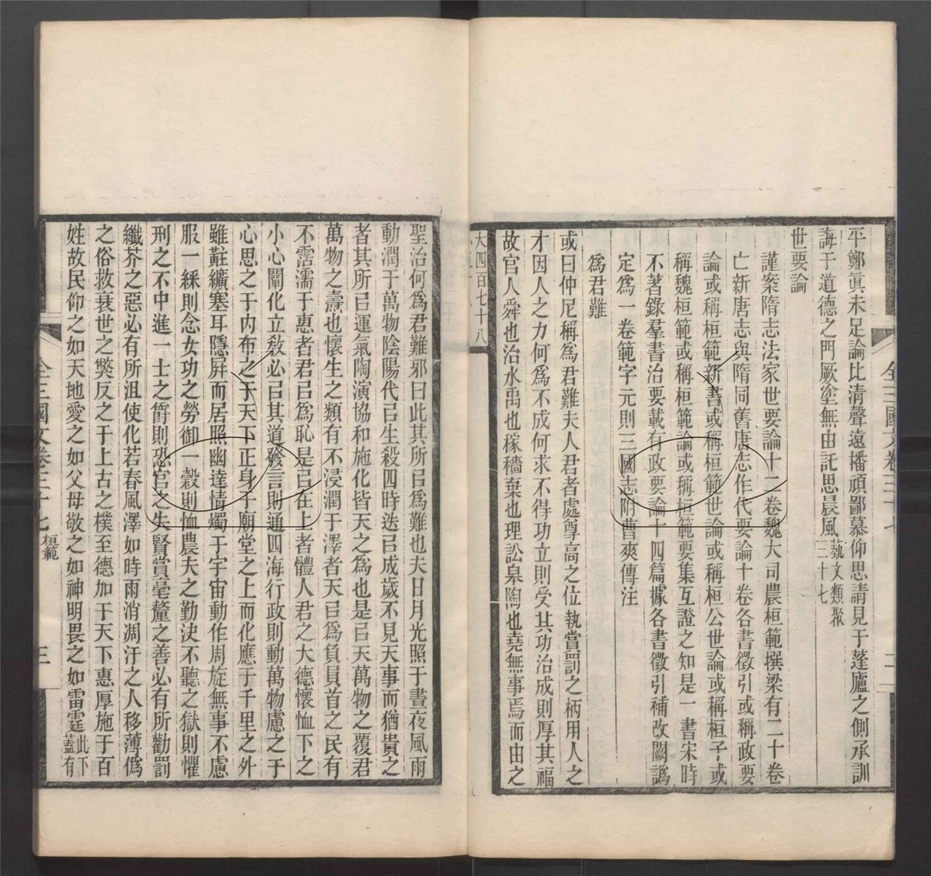 平鄭真未足論比清聲遠播頑鄙慕仰思請見于蓬廬之側承訓
誨于道德之門厥塗無由託思晨風藝文類聚二十七
世要論
謹案隋志法家世要論十二卷魏大司農桓範撰梁有二十卷
亡新唐志與隋同舊唐志作代要論十卷各書徵引或稱政要
論或稱桓範新書或稱桓範世論或稱桓公世論或稱桓子或
稱魏桓範或稱桓範論或稱桓範要集互證之知是一書宋時
不著錄羣書治要載有政要論十四篇據各書徵引補改闕譌
定爲一卷範字元則三國志附曹爽傳注
爲君難
或曰仲尼稱爲君難夫人君者處尊高之位執賞罰之柄用人之
才因人之力何爲不成何求不得功立則受其功治成則厚其福
故官人舜也治水禹也稼穡棄也理訟臯陶也堯無事焉而由之
大四百七十八
全三國文卷三十七
二
聖治何爲君難邪曰此其所㠯爲難也夫日月光照于晝夜風雨
動潤于萬物陰陽代㠯生殺四時迭㠯成歲不見天事而猶貴之
者其所㠯運氣陶演協和施化皆天之爲也是㠯天萬物之覆君
萬物之燾也懷生之類有不浸潤于澤者天㠯爲負員首之民有
不霑濡于惠者君㠯爲恥是㠯在上者體人君之大德懷恤下之
小心闡化立敎必㠯其道發言則通四海行政則動萬物慮之于
心思之于内布之于天下正身于廟堂之上而化應于千里之外
雖黈纊塞耳隱屏而居照幽達情燭于宇宙動作周旋無事不慮
服一綵則念女功之勞御一穀則恤農夫之勤決不聽之獄則懼
刑之不中進一士之爵則恐官之失賢賞毫釐之善必有所勸罰
纖芥之惡必有所沮使化若春風澤如時雨消凋汙之人移薄僞
之俗救衰世之獘反之于上古之樸至德加于天下惠厚施于百
姓故民仰之如天地愛之如父母敬之如神明畏之如雷霆此下蓋有
全三國文卷三十七 桓範
三